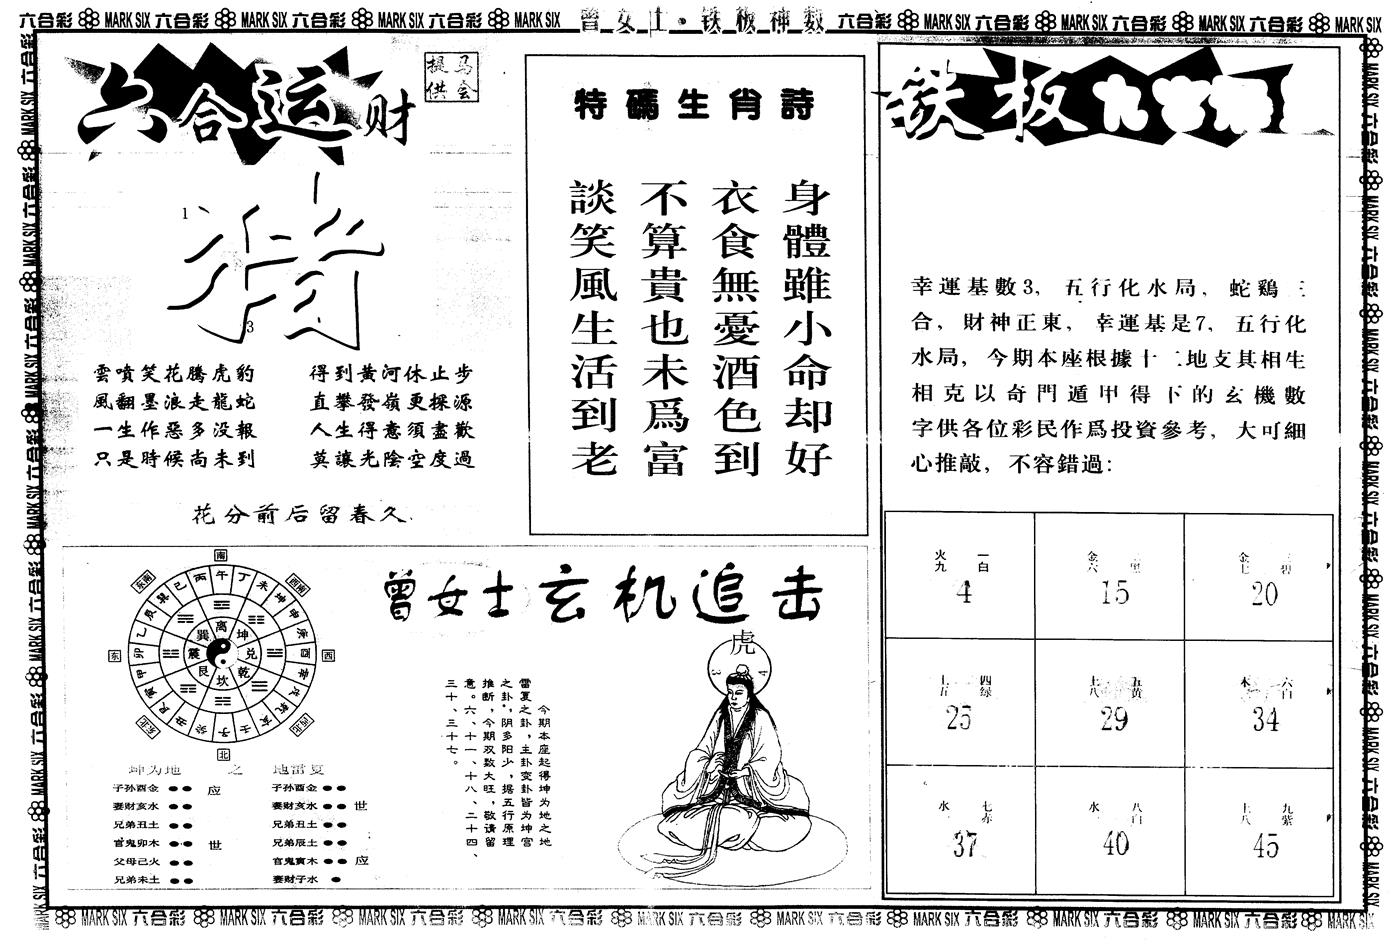 六合彩 MARK SIX 六合彩 MARK SIX 六合彩 MARK SIX 六合彩 MARK SIX 曾女士·铁板神数 六合彩 MARK SIX 六合彩 MARK SIX 六合彩 MARK SIX 六合彩 MARK SIX
六合运财
马会提供
猪
1
3
雲噴笑花騰虎豹
風翻墨浪走龍蛇
一生作惡多没報
只是時候尚未到
得到黃河休止步
直攀發嶺更探源
人生得意須盡歡
莫讓光陰空度過
花分前后留春久
特碼生肖詩
身體雖小命却好
衣食無憂酒色到
不算貴也未爲富
談笑風生活到老
铁板
幸運基數3,五行化水局,蛇鷄三
合,財神正東,幸運基是7,五行化
水局,今期本座根據十二地支其相生
相克以奇門遁甲得下的玄機數
字供各位彩民作爲投資參考,大可細
心推敲,不容錯過:
火九 一白 4
金六 15
金七 碧 20
四绿 25
土八 五黄 29
木 六白 34
水 七赤 37
水 八白 40
土八 九紫 45
曾女士玄机追击
南
东南
西南
东
西
东北
西北
北
丙午丁未坤申庚酉辛戌乾亥壬子癸丑艮寅甲卯乙辰巽己
离坤兑乾坎艮震巽
坤为地 之 地雷复
子孙酉金 应
妻财亥水
兄弟丑土
官鬼卯木 世
父母己火
兄弟未土
子孙酉金
妻财亥水 世
兄弟丑土
兄弟辰土
官鬼寅木 应
妻财子水
今期本座起得坤为地之地
雷复之卦,主卦变卦皆为坤宫
之卦,阴多阳少,据五行原理
推断,今期双数大旺,敬请留
意。六、十一、十八、二十四、
三十、三十七。
虎
3
4
六合彩 MARK SIX 六合彩 MARK SIX 六合彩 MARK SIX 六合彩 MARK SIX 六合彩 MARK SIX 六合彩 MARK SIX 六合彩 MARK SIX 六合彩 MARK SIX 六合彩 MARK SIX 六合彩 MARK SIX